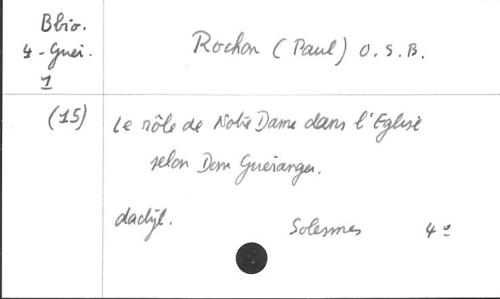 Bbio.
4 - Guér.
1
Rochon (Paul) O.S.B.
(15)
Le rôle de Notre Dame dans l'Eglise
selon Dom Guéranger.
dactyl.
Solesmes 4º